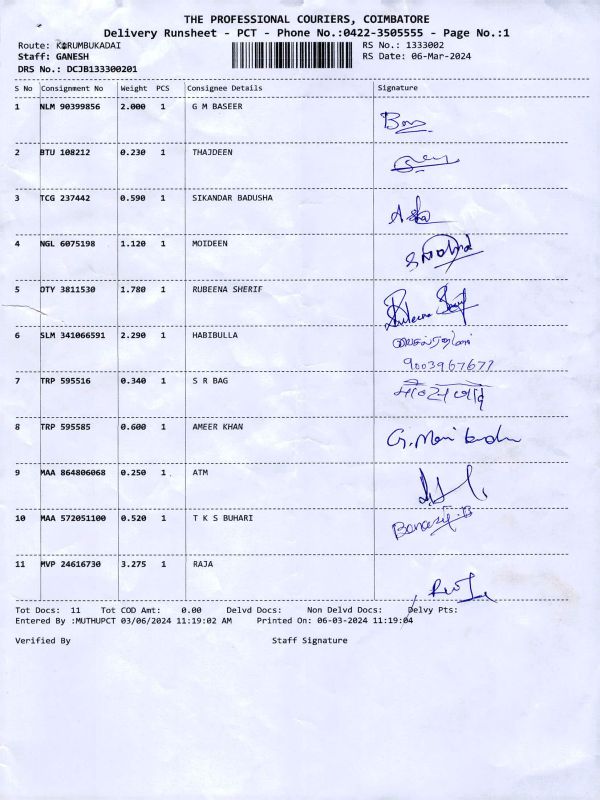 THE PROFESSIONAL COURIERS, COIMBATORE
Delivery Runsheet - PCT - Phone No.:0422-3505555 - Page No.:1
Route: KARUMBUKADAI RS No.: 1333002
Staff: GANESH RS Date: 06-Mar-2024
DRS No.: DCJB133300201
S No Consignment No Weight PCS Consignee Details Signature
1 NLM 90399856 2.000 1 G M BASEER
2 BTU 108212 0.230 1 THAJDEEN
3 TCG 237442 0.590 1 SIKANDAR BADUSHA
4 NGL 6075198 1.120 1 MOIDEEN
5 DTY 3811530 1.780 1 RUBEENA SHERIF
6 SLM 341066591 2.290 1 HABIBULLA
9003967677
7 TRP 595516 0.340 1 S R BAG
8 TRP 595585 0.600 1 AMEER KHAN
9 MAA 864806068 0.250 1 ATM
10 MAA 572051100 0.520 1 T K S BUHARI
11 MVP 24616730 3.275 1 RAJA
Tot Docs: 11 Tot COD Amt: 0.00 Delvd Docs: Non Delvd Docs: Delvy Pts:
Entered By :MUTHUPCT 03/06/2024 11:19:02 AM Printed On: 06-03-2024 11:19:04
Verified By Staff Signature